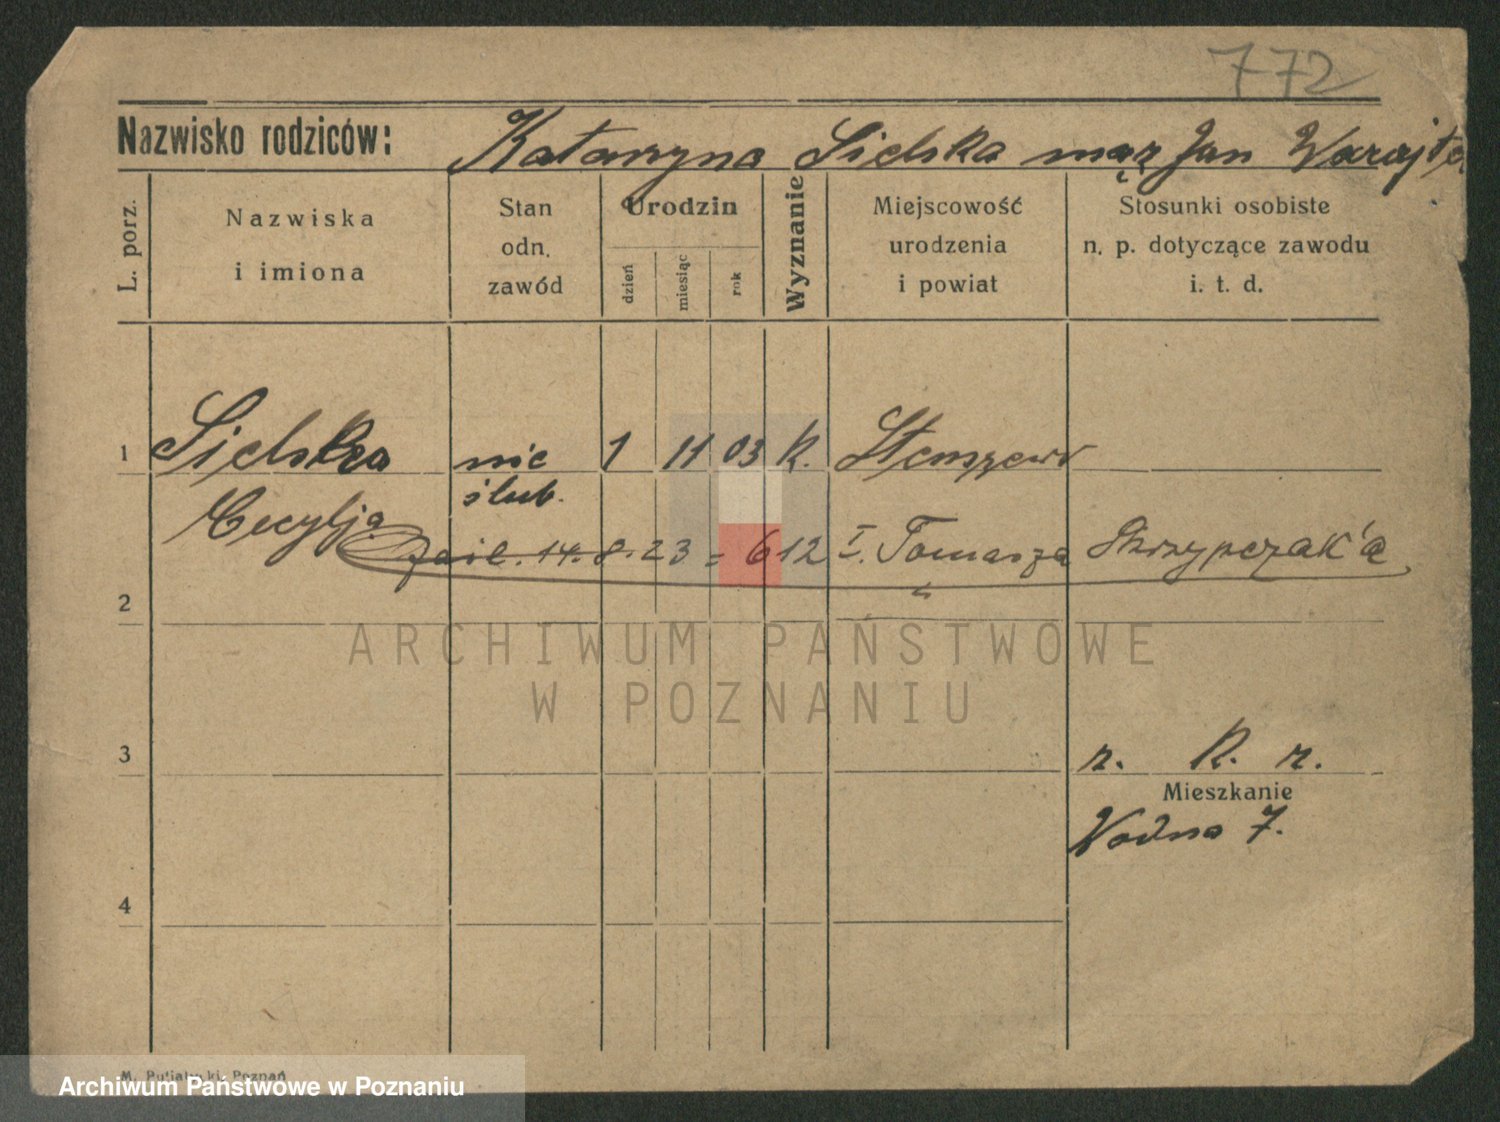 772
Nazwisko rodziców: Katarzyna Sielska mąż Jan
L. porz.
Nazwiska
i imiona
Stan
odn.
zawód
Urodzin
dzień
miesiąc
rok
Wyznanie
Miejscowość
urodzenia
i powiat
Stosunki osobiste
n. p. dotyczące zawodu
i. t. d.
1 Sielska nie 1 11 03 k. Stenszewo
ślub.
Cecylja
14. 8. 23 = 612 I. Tomasza Skrzypczak'a
2
ARCHIWUM PAŃSTWOWE
W POZNANIU
3 r. k. r.
Mieszkanie
Wodna 7.
4
Poznań
Archiwum Państwowe w Poznaniu